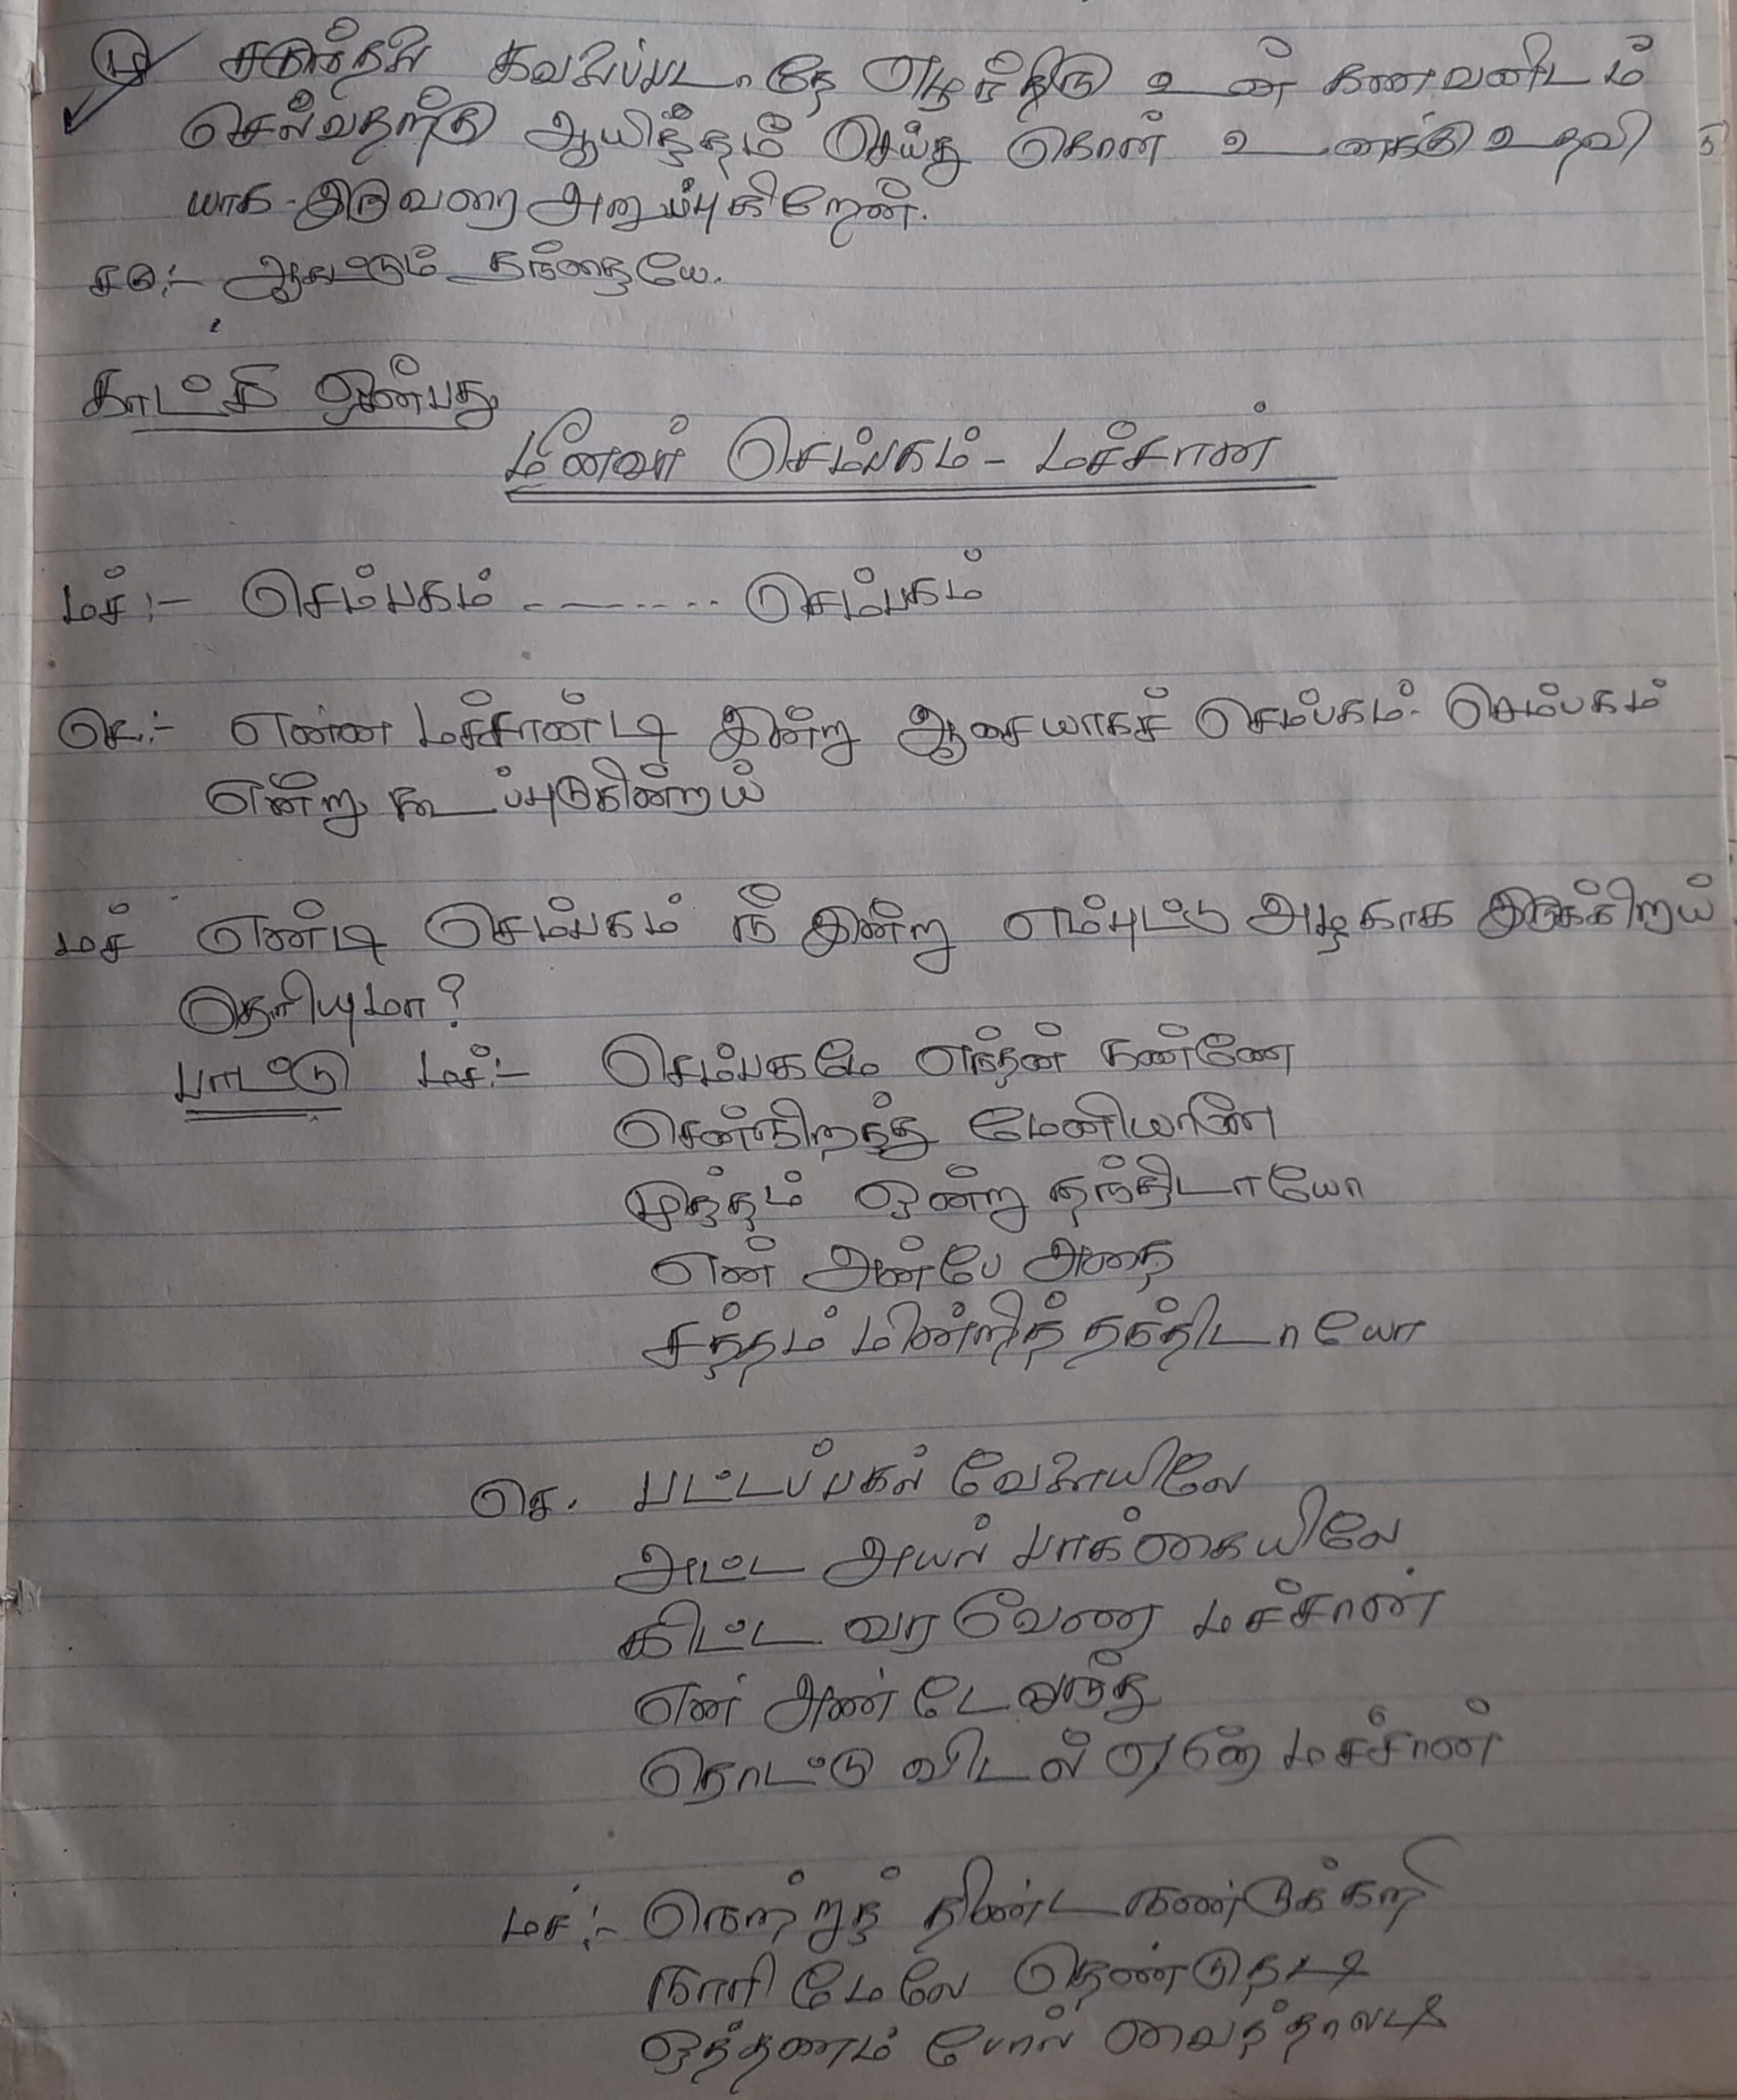 கவலைப்படாதே எழுந்திரு உன் கணவனிடம்
செல்வதற்கு ஆயித்தம் செய்து கொள் உனக்கு உதவி
யாக இருவரை அனுப்புகிறேன்.
சகு:- ஆகட்டும் தந்தையே.
காட்சி ஒன்பது
மீனவர் செம்பகம் - மச்சான்
மச்:- செம்பகம் - - - - - - - செம்பகம்
செ:- என்ன மச்சாண்டி இன்று ஆசையாகச் செம்பகம் - செம்பகம்
என்று கூப்புடுகின்றாய்
மச் எண்டி செம்பகம் நீ இன்று எம்புட்டு அழகாக இருக்கிறாய்
தெரியுமா?
பாட்டு மச்:- செம்பகமே எந்தன் கண்ணே
செண்நிறத்து மேனியாளே
முத்தம் ஒன்று தந்திடாயோ
என் அன்பே அதை
சத்தம் மின்றித் தந்திடாயோ
செ. பட்டப்பகல் வேளையிலே
அட்ட அயல் பாக்கையிலே
கிட்ட வர வேணா மச்சான்
என் அண்டே வந்து
தொட்டு விடல் ஏனே மச்சான்
மச்:- நேற்றுத் திண்ட நண்டுக்கறி
நாரி மேலே தெண்டுதடி
ஒத்தணம் போல் வைத்தாலடி